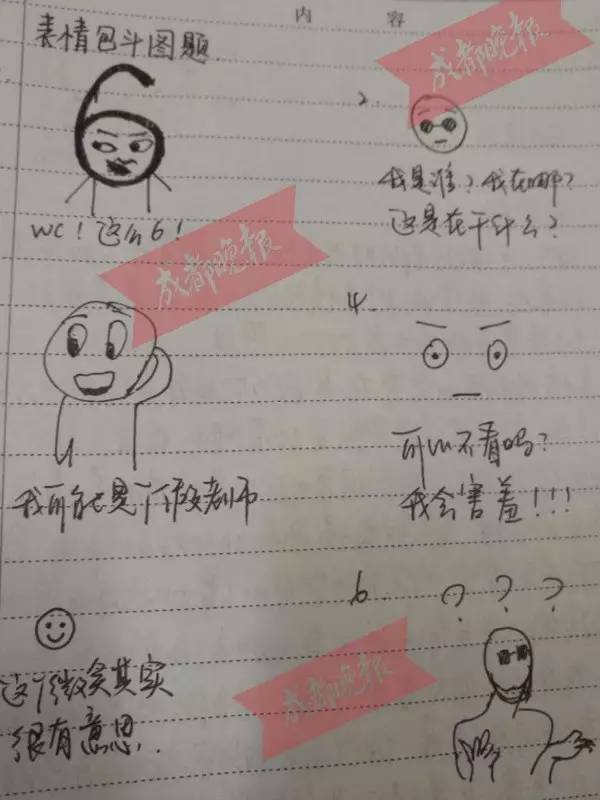 内 容
表情包斗图题
成都晚报
2.
我是谁?我在哪?
这是在干什么?
WC!这么6!
成都晚报
4.
我可能是个假老师
可以不看吗?
我会害羞!!!
6. ? ? ?
这个微笑其实
很有意思.
成都晚报